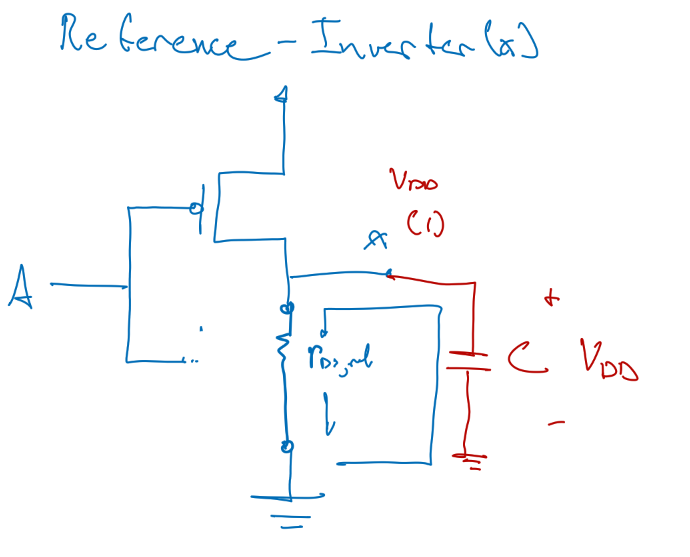 Reference - Inverter (x)
VDD
(1)
x
A
+
rDS,ref
C
VDD
-